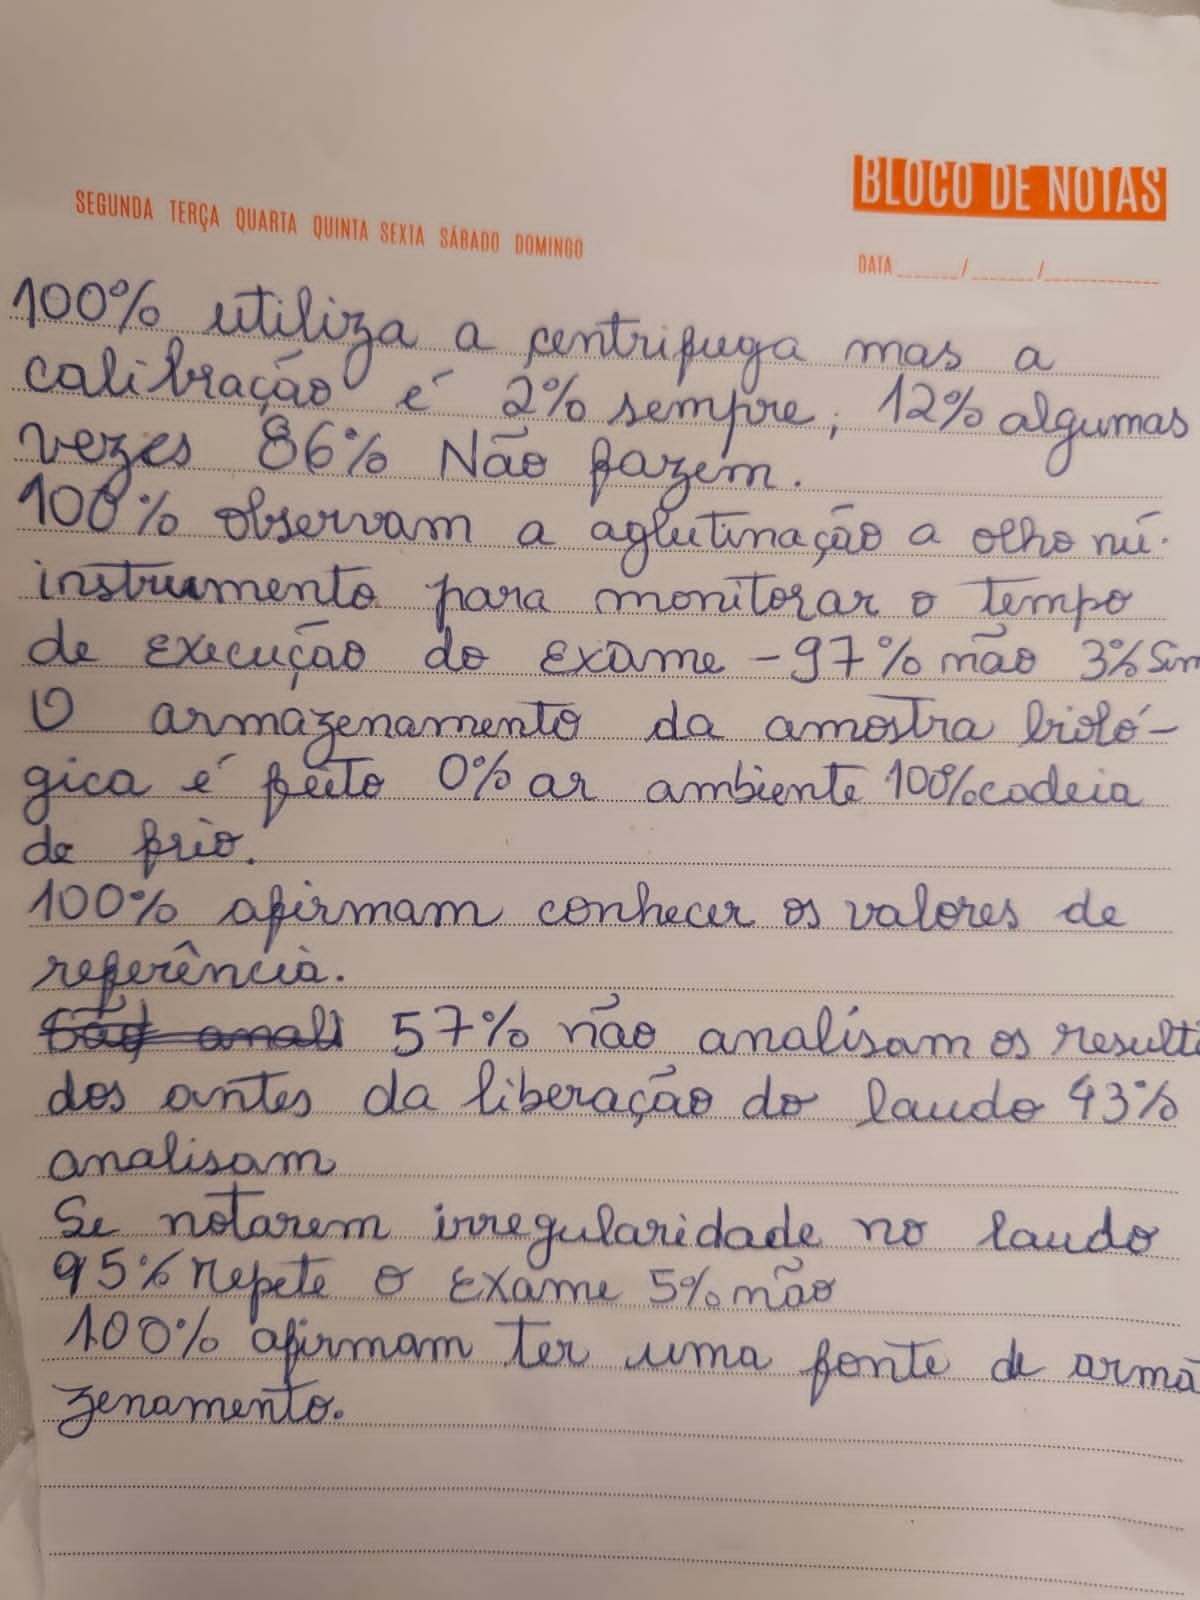 BLOCO DE NOTAS
SEGUNDA TERÇA QUARTA QUINTA SEXTA SÁBADO DOMINGO
DATA ______/______/__________
100% utiliza a centrifuga mas a
calibração é 2% sempre, 12% algumas
vezes 86% Não fazem.
100% observam a aglutinação a olho nú.
instrumento para monitorar o tempo
de execução do exame - 97% não 3% Sim
O armazenamento da amostra bioló-
gica é feito 0% ar ambiente 100% cadeia
de frio.
100% afirmam conhecer os valores de
referência.
57% não analisam os resulta
dos antes da liberação do laudo 43%
analisam
Se notarem irregularidade no laudo
95% repete o exame 5% não
100% afirmam ter uma fonte de arma
zenamento.